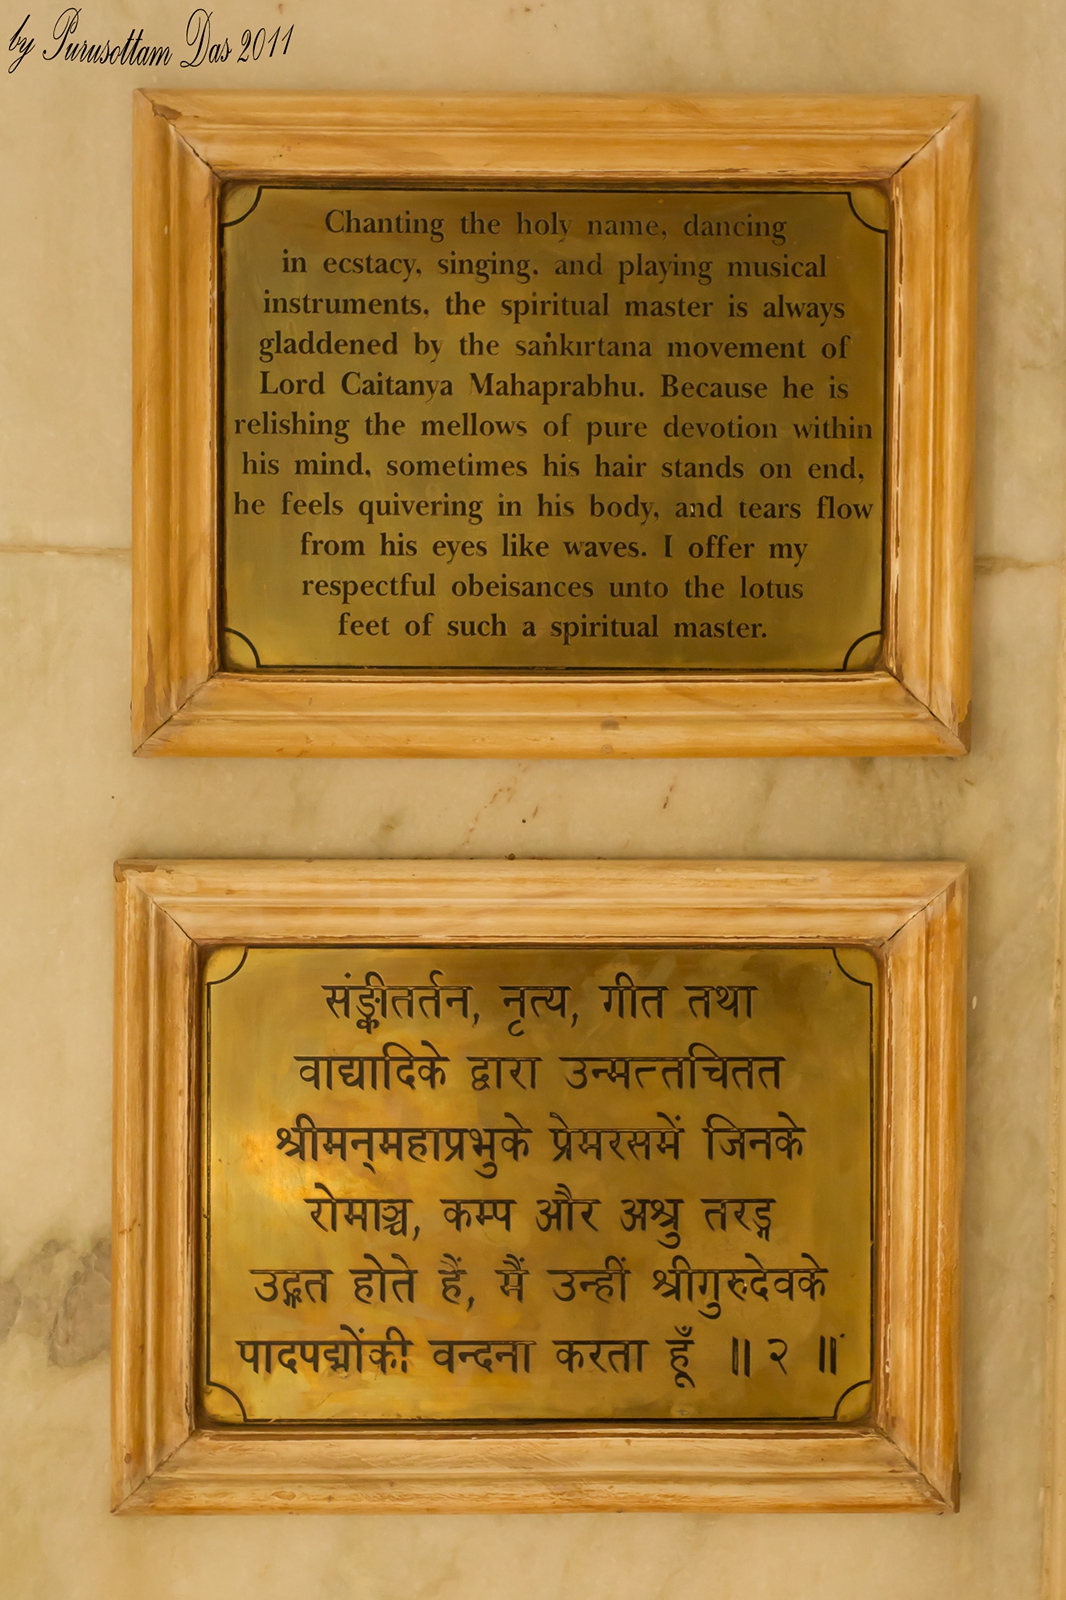 by Purusottam Das 2011
Chanting the holy name, dancing
in ecstacy, singing. and playing musical
instruments, the spiritual master is always
gladdened by the saṅkırtana movement of
Lord Caitanya Mahaprabhu. Because he is
relishing the mellows of pure devotion within
his mind, sometimes his hair stands on end,
he feels quivering in his body, and tears flow
from his eyes like waves. I offer my
respectful obeisances unto the lotus
feet of such a spiritual master.
संङ्कीतर्तन, नृत्य, गीत तथा
वाद्यादिके द्वारा उन्मत्तचितत
श्रीमन्‌महाप्रभुके प्रेमरसमें जिनके
रोमाञ्च, कम्प और अश्रु तरङ्ग
उद्गत होते हैं, मैं उन्हीं श्रीगुरुदेवके
पादपद्मोंकी वन्दना करता हूँ ॥ २ ॥